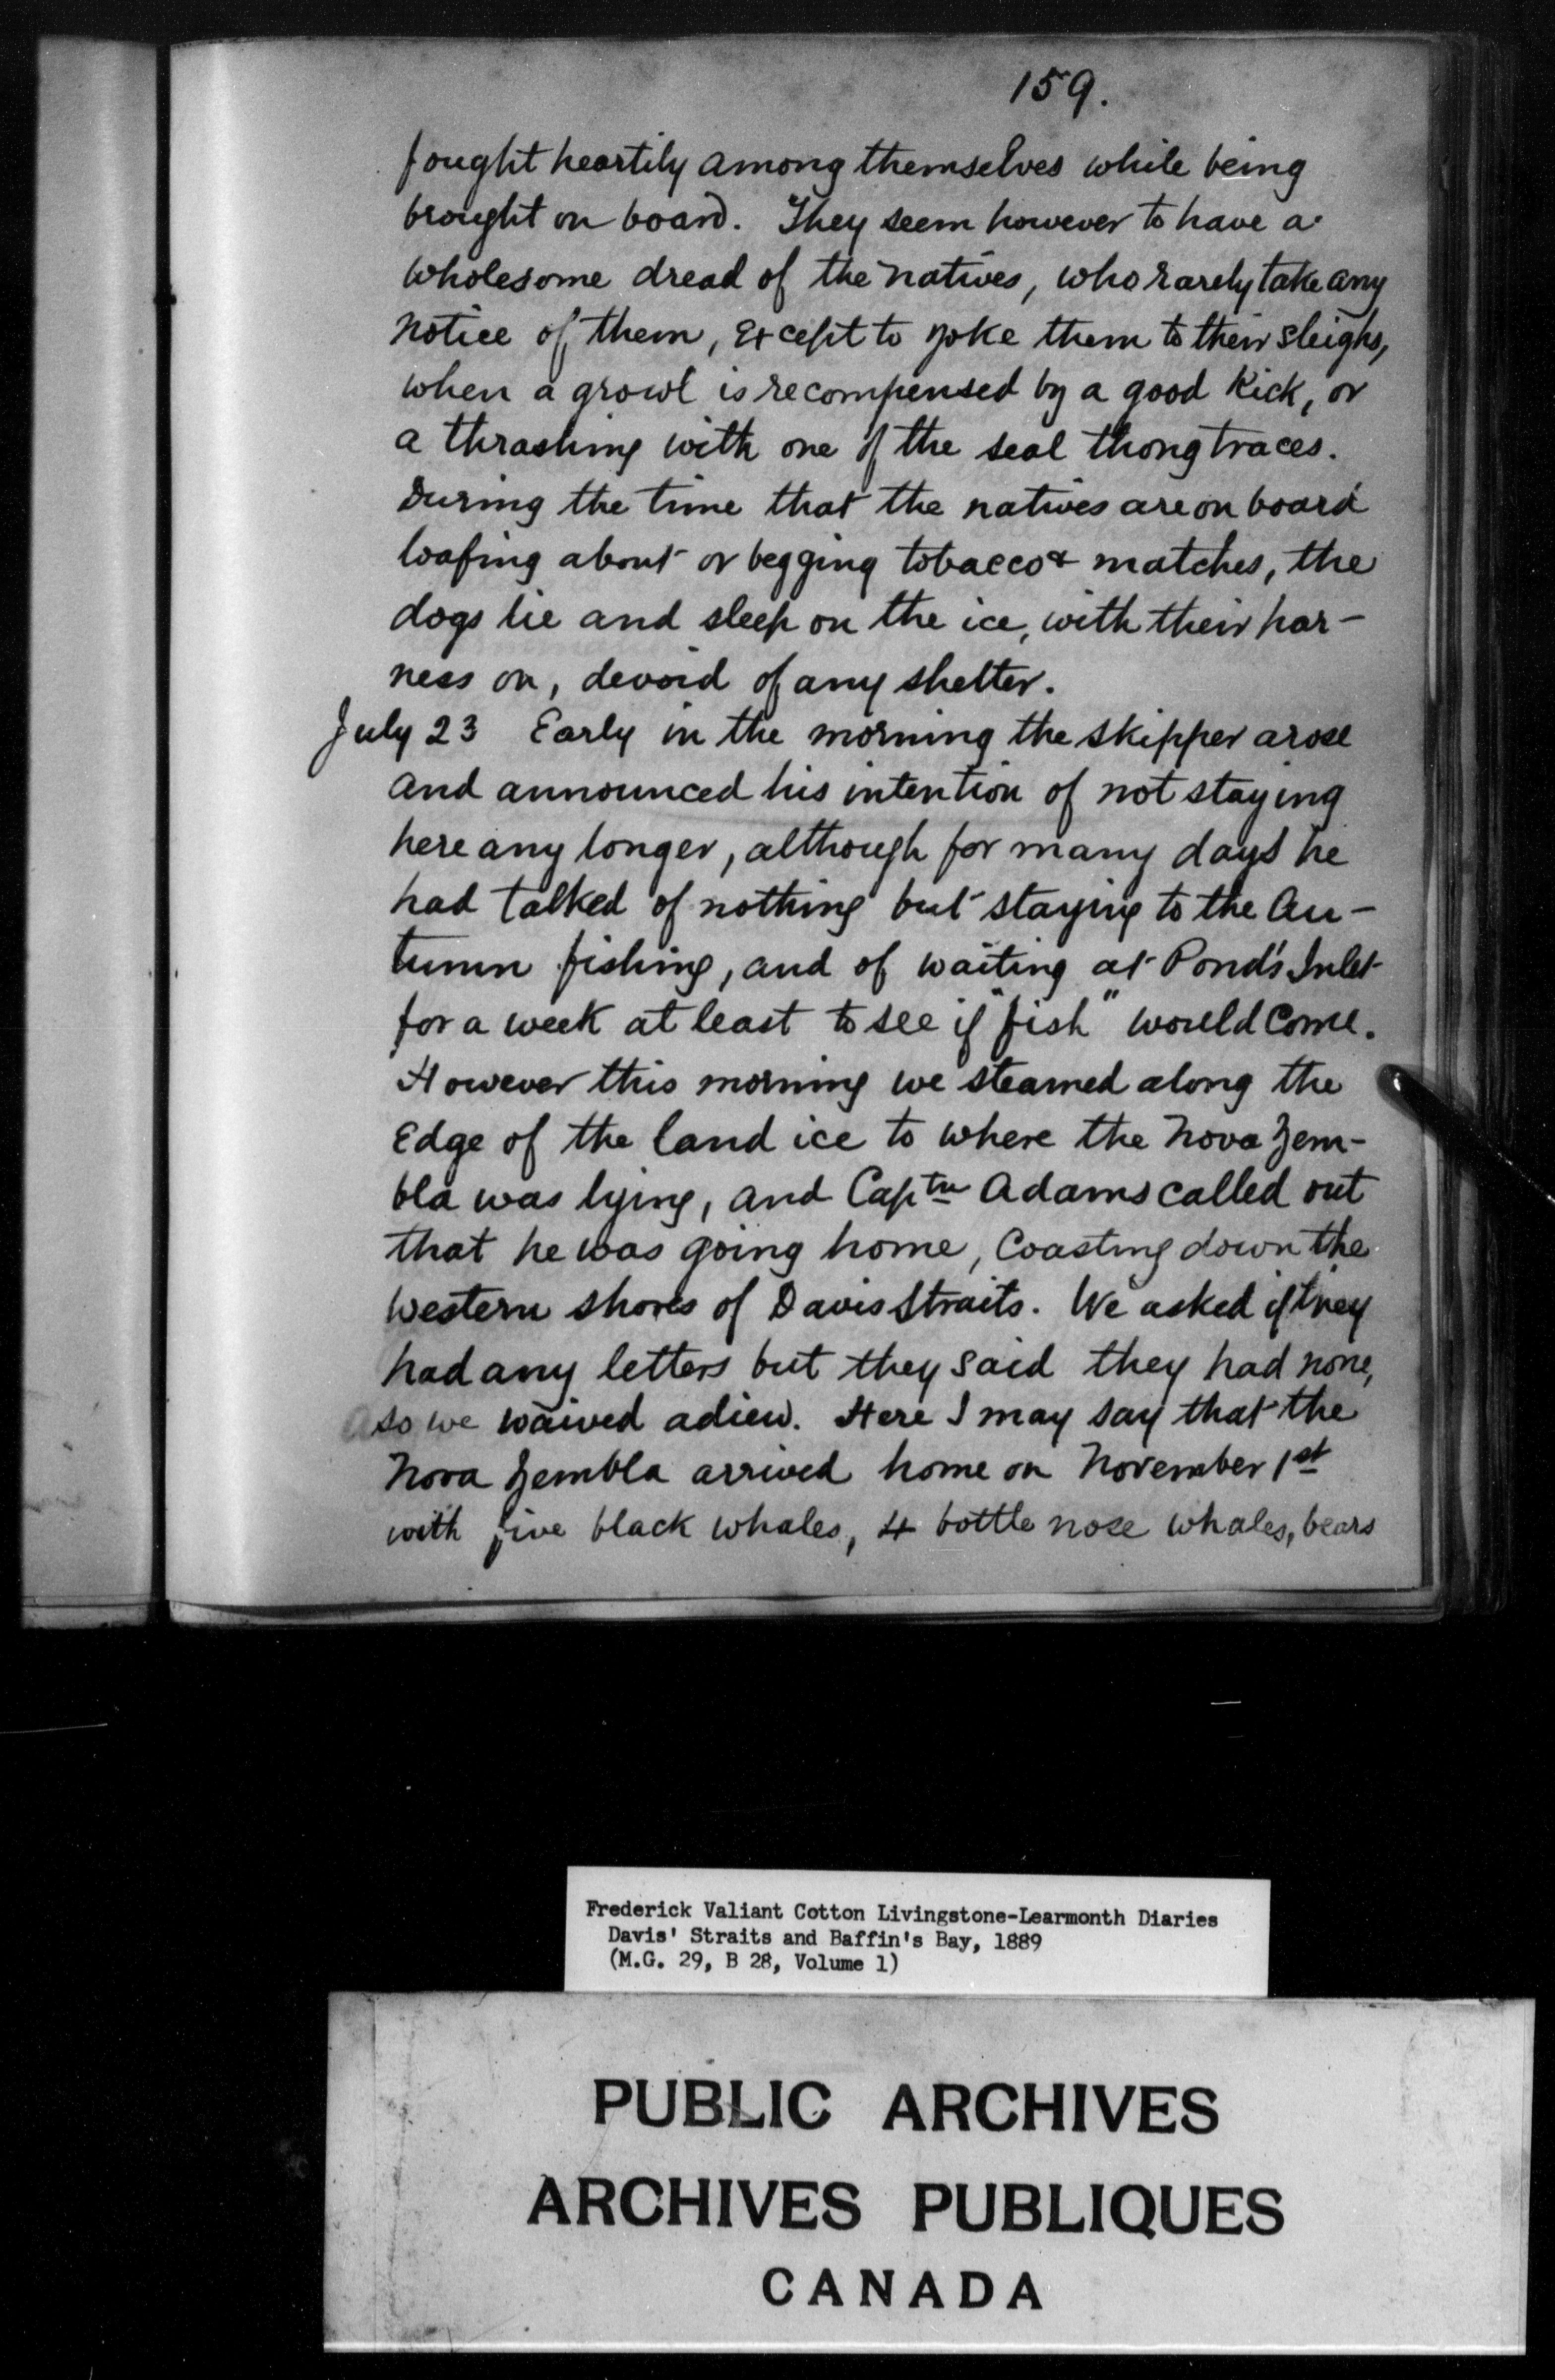 159.
fought heartily among themselves while being
brought on board. They seem however to have a
wholesome dread of the natives, who rarely take any
notice of them, except to yoke them to their sleighs,
when a growl is recompensed by a good kick, or
a thrashing with one of the seal thong traces.
During the time that the natives are on board
loafing about or begging tobacco & matches, the
dogs lie and sleep on the ice, with their har-
ness on, devoid of any shelter.
July 23 Early in the morning the skipper arose
and announced his intention of not staying
here any longer, although for many days he
had talked of nothing but staying to the Au-
tumn fishing, and of waiting at Pond's Inlet
for a week at least to see if "fish" would come.
However this morning we steamed along the
Edge of the land ice to where the Nova Zem-
bla was lying, and Captn Adams called out
that he was going home, coasting down the
western shores of Davis Straits. We asked if they
had any letters but they said they had none,
so we waived adieu. Here I may say that the
Nova Zembla arrived home on November 1st
with five black whales, 4 bottle nose whales, bears
Frederick Valiant Cotton Livingstone-Learmonth Diaries
Davis' Straits and Baffin's Bay, 1889
(M.G. 29, B 28, Volume 1)
PUBLIC ARCHIVES
ARCHIVES PUBLIQUES
CANADA